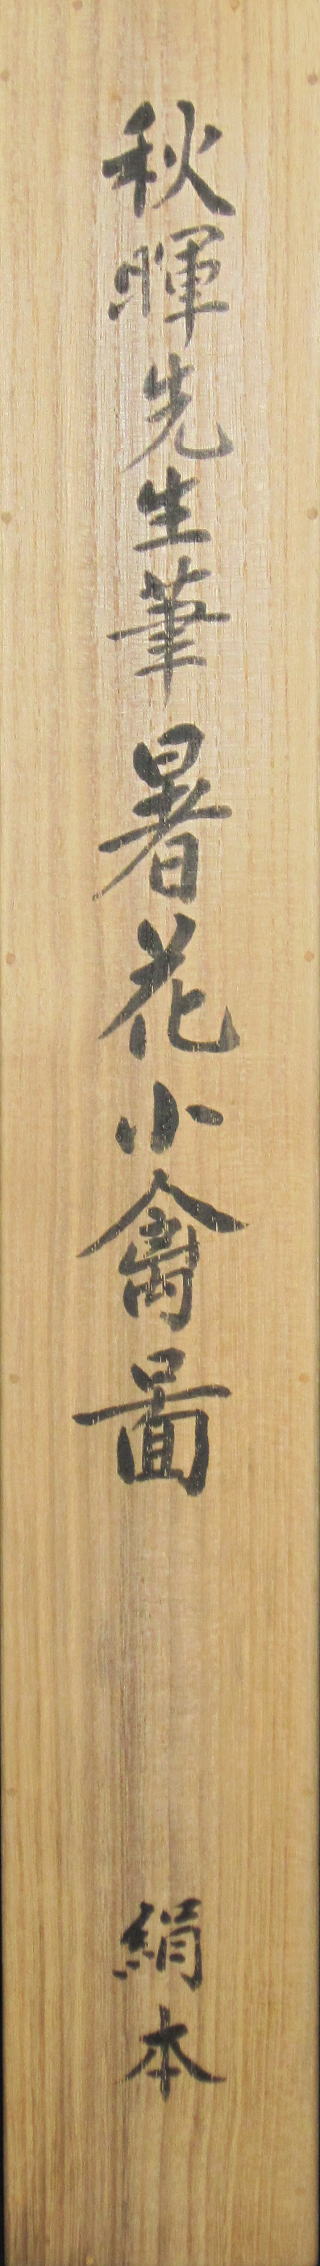 秋暉先生筆暑花小禽圖
絹本